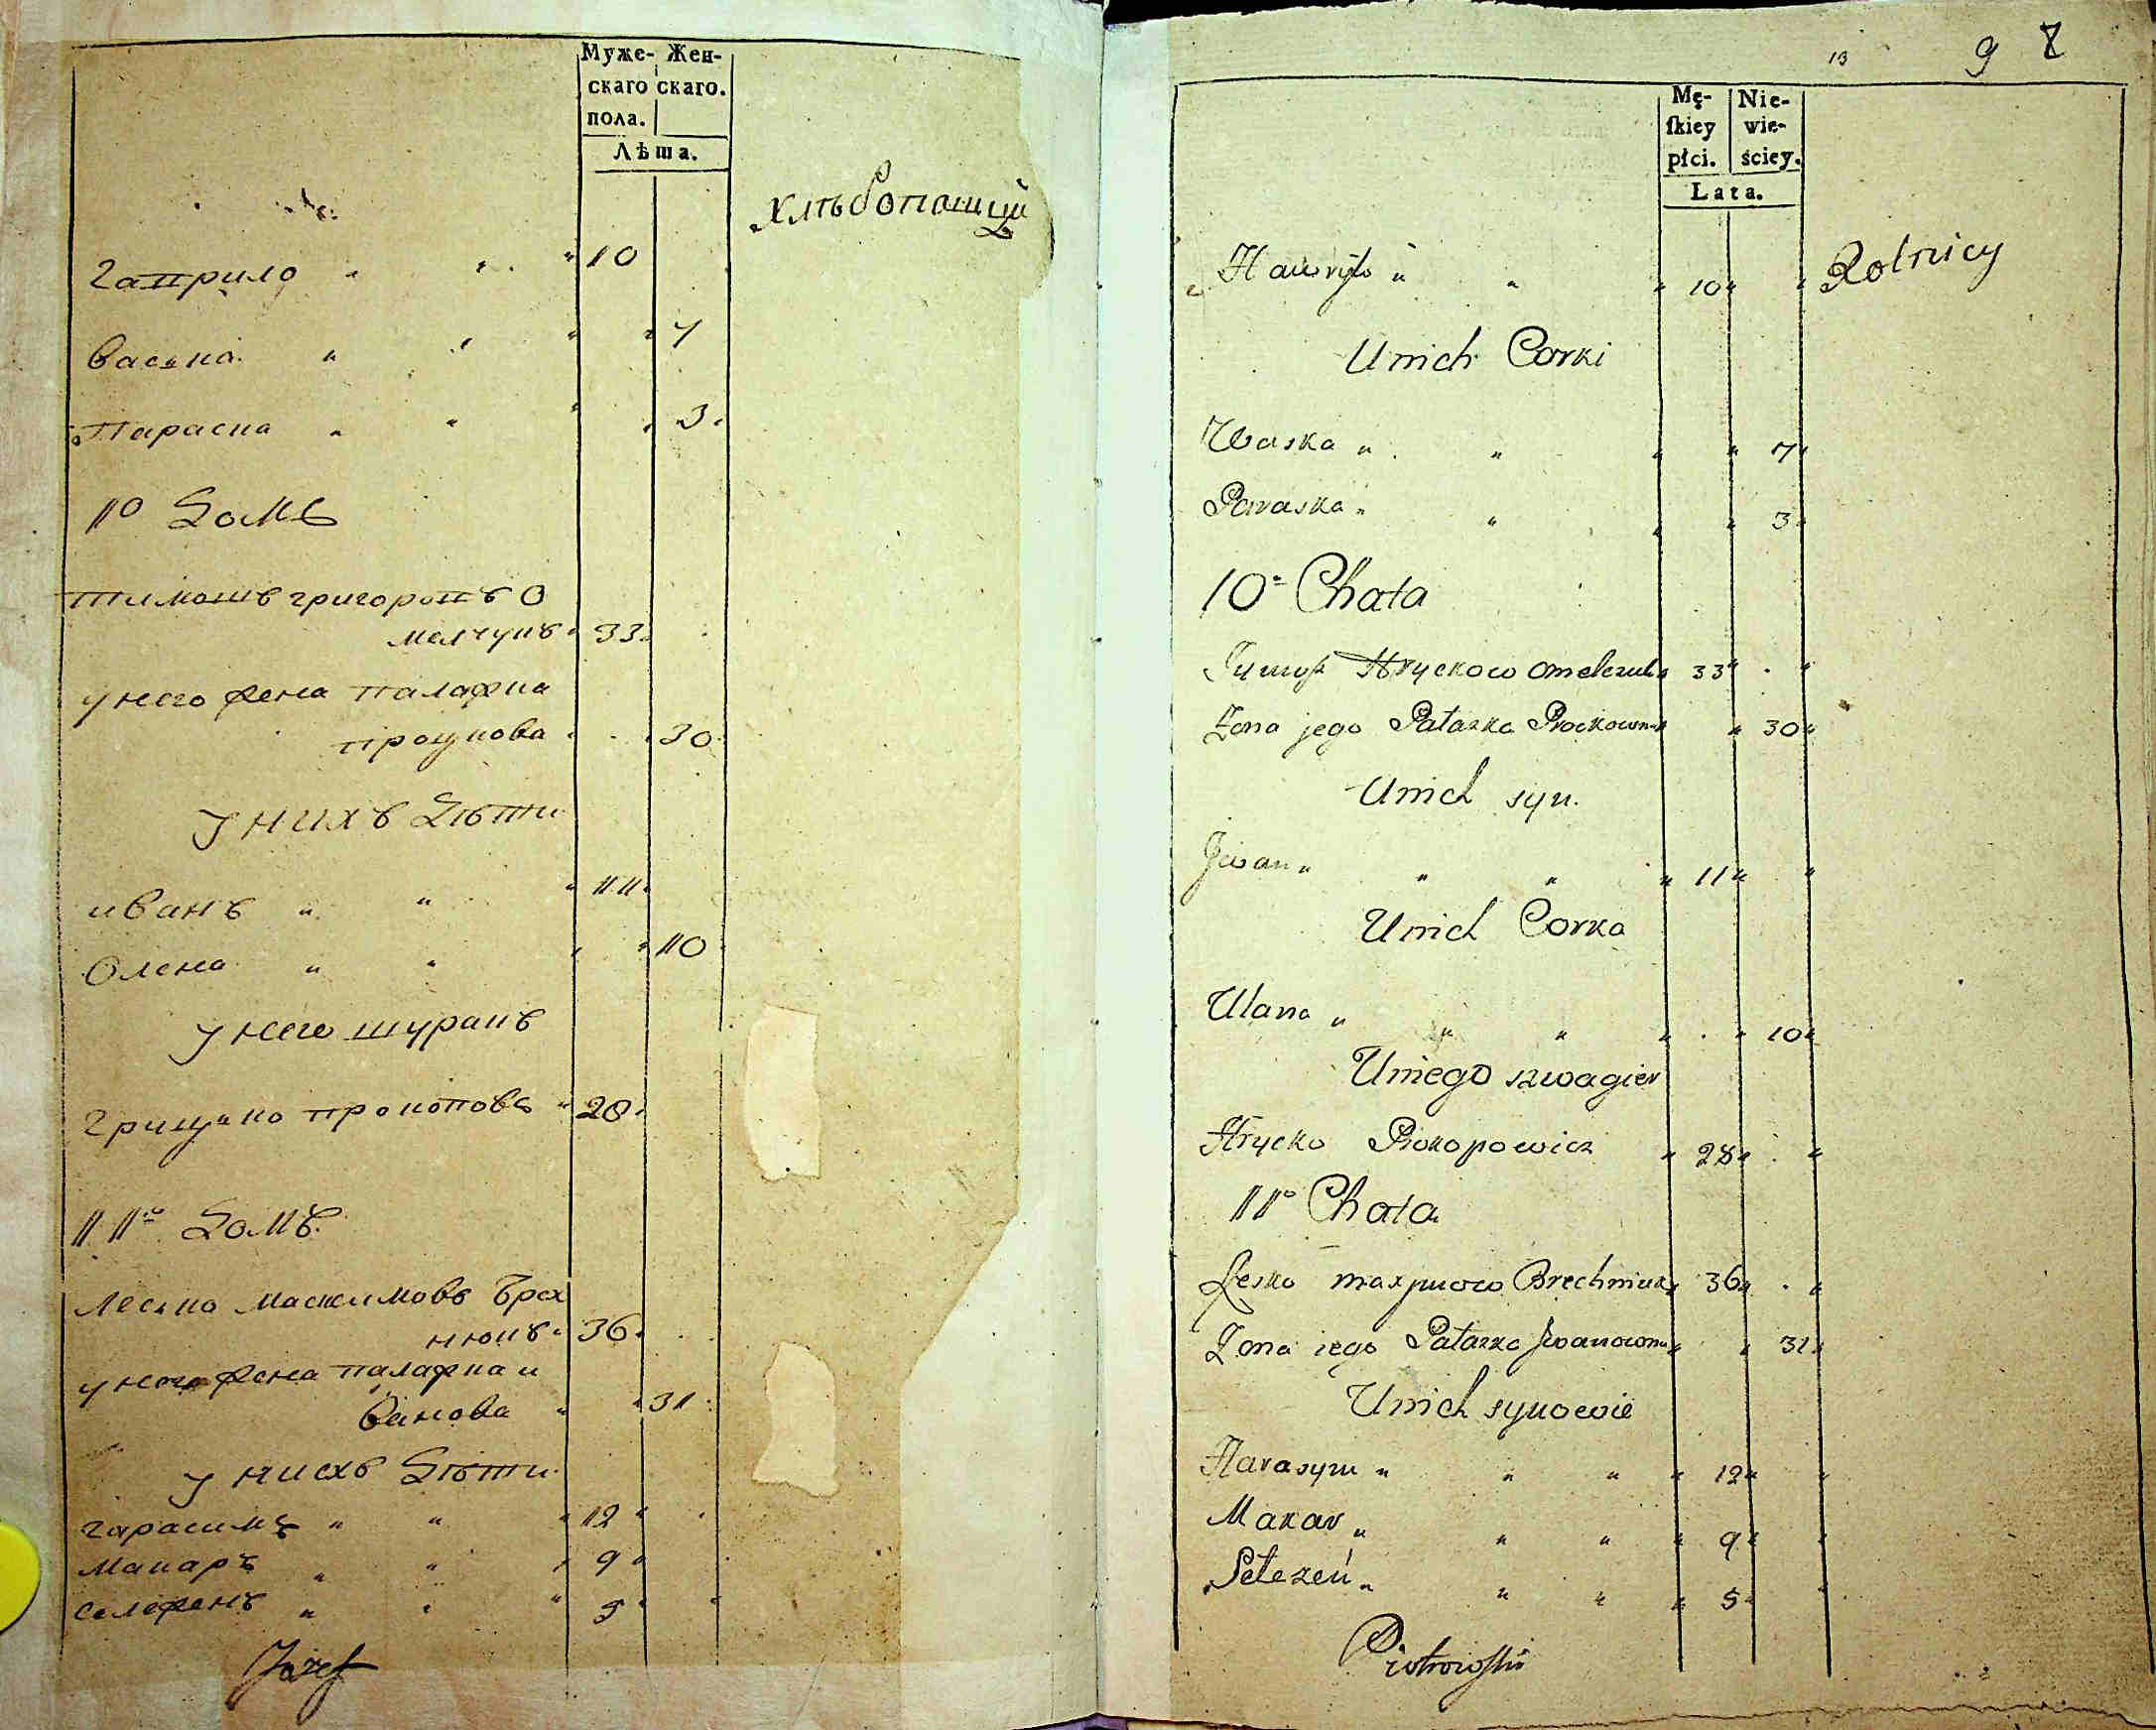 Муже- Жен-
скаго скаго.
пола.
Лѣта.
хлѣбопашцы
Гаврило " " " 10
Васка " " " " 7
Параска " " " " 3
10 Домъ
Тимошъ григоровъ О
мелчукъ " 33
у него жена палажка
процкова " " 30
у нихъ Дѣти
иванъ " " " 11
Олена " " " " 10
у него шуринъ
грицко прокоповъ " 28
11й Домъ
Леско максимовъ Брех
нюкъ " 36
у него жена палажка и
ванова " " 31
у нихъ Дѣти
гарасимъ " " " 12
макаръ " " " 9
сележенъ " " " 5
Józef
13 9
Mę- Nie-
skiey wie-
płci. ściey.
Lata.
Hawryło " " " 10 " " Rolnicy
Unich Corki
Waska " " " " 7
Paraska " " " " 3
10a Chata
Tymosz Hryckow Omelczuk " 33 "
Zona jego Pałazka Prockowna " 30
Unich syn.
Jwan " " " " 11 "
Unich Corka
Ulana " " " " " 10
Uniego szwagier
Hrycko Prokopowicz " 28 " "
11a Chata
Lesko maxymow Brechniuk " 36 "
Zona iego Pałazka Jwanowna " " 31
Unich synowie
Harasym " " " " 12 " "
Makar " " " " 9 " "
Seleżeń " " " " 5 " "
Piotrowski